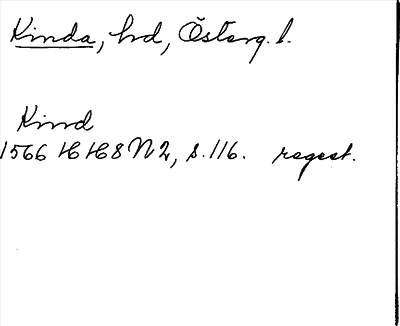 Kinda, hd, Österg. l.
Kind
1566 HH8 N2, s. 116. regest.